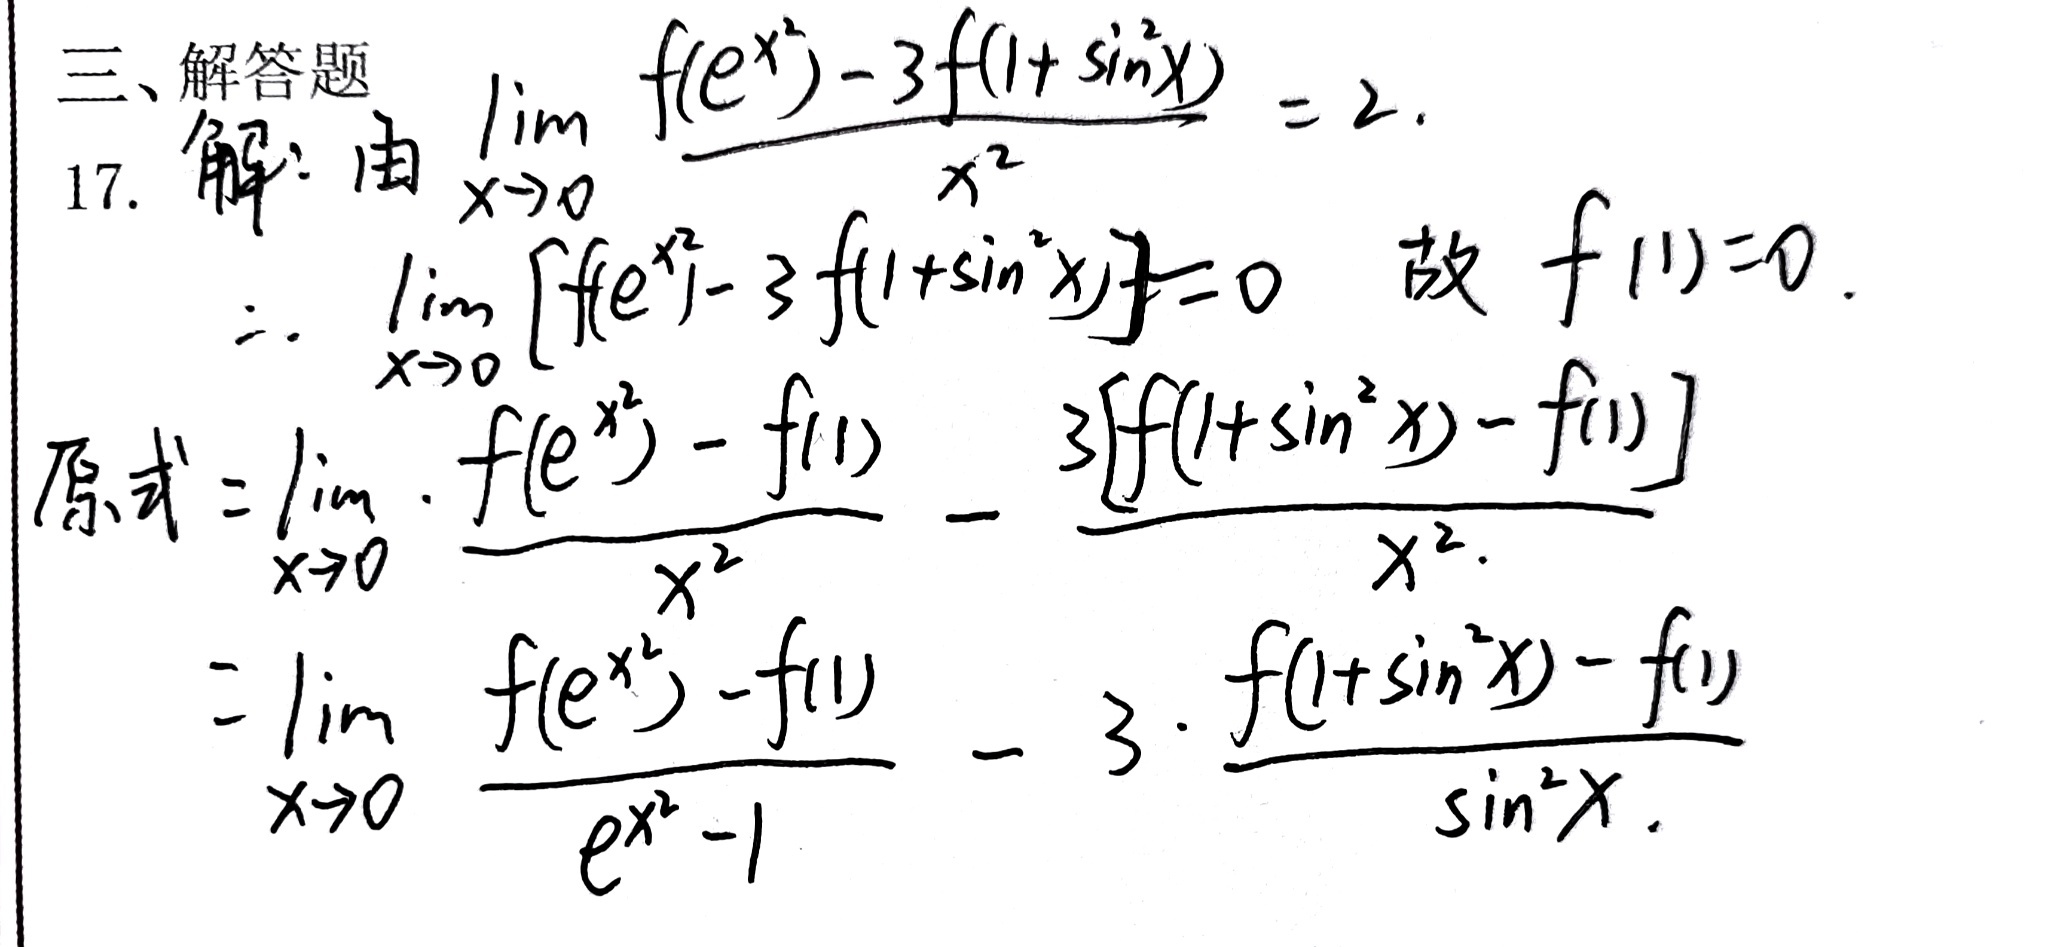 三、解答题
17. 解: 由 lim_{x→0} \frac{f(e^{x^2})-3f(1+sin^2x)}{x^2} = 2.
∴ lim_{x→0} [f(e^{x^2})-3f(1+sin^2x)]=0 故 f(1)=0.
原式=lim_{x→0} · \frac{f(e^{x^2})-f(1)}{x^2} - \frac{3[f(1+sin^2x)-f(1)]}{x^2}.
=lim_{x→0} \frac{f(e^{x^2})-f(1)}{e^{x^2}-1} - 3·\frac{f(1+sin^2x)-f(1)}{sin^2x}.